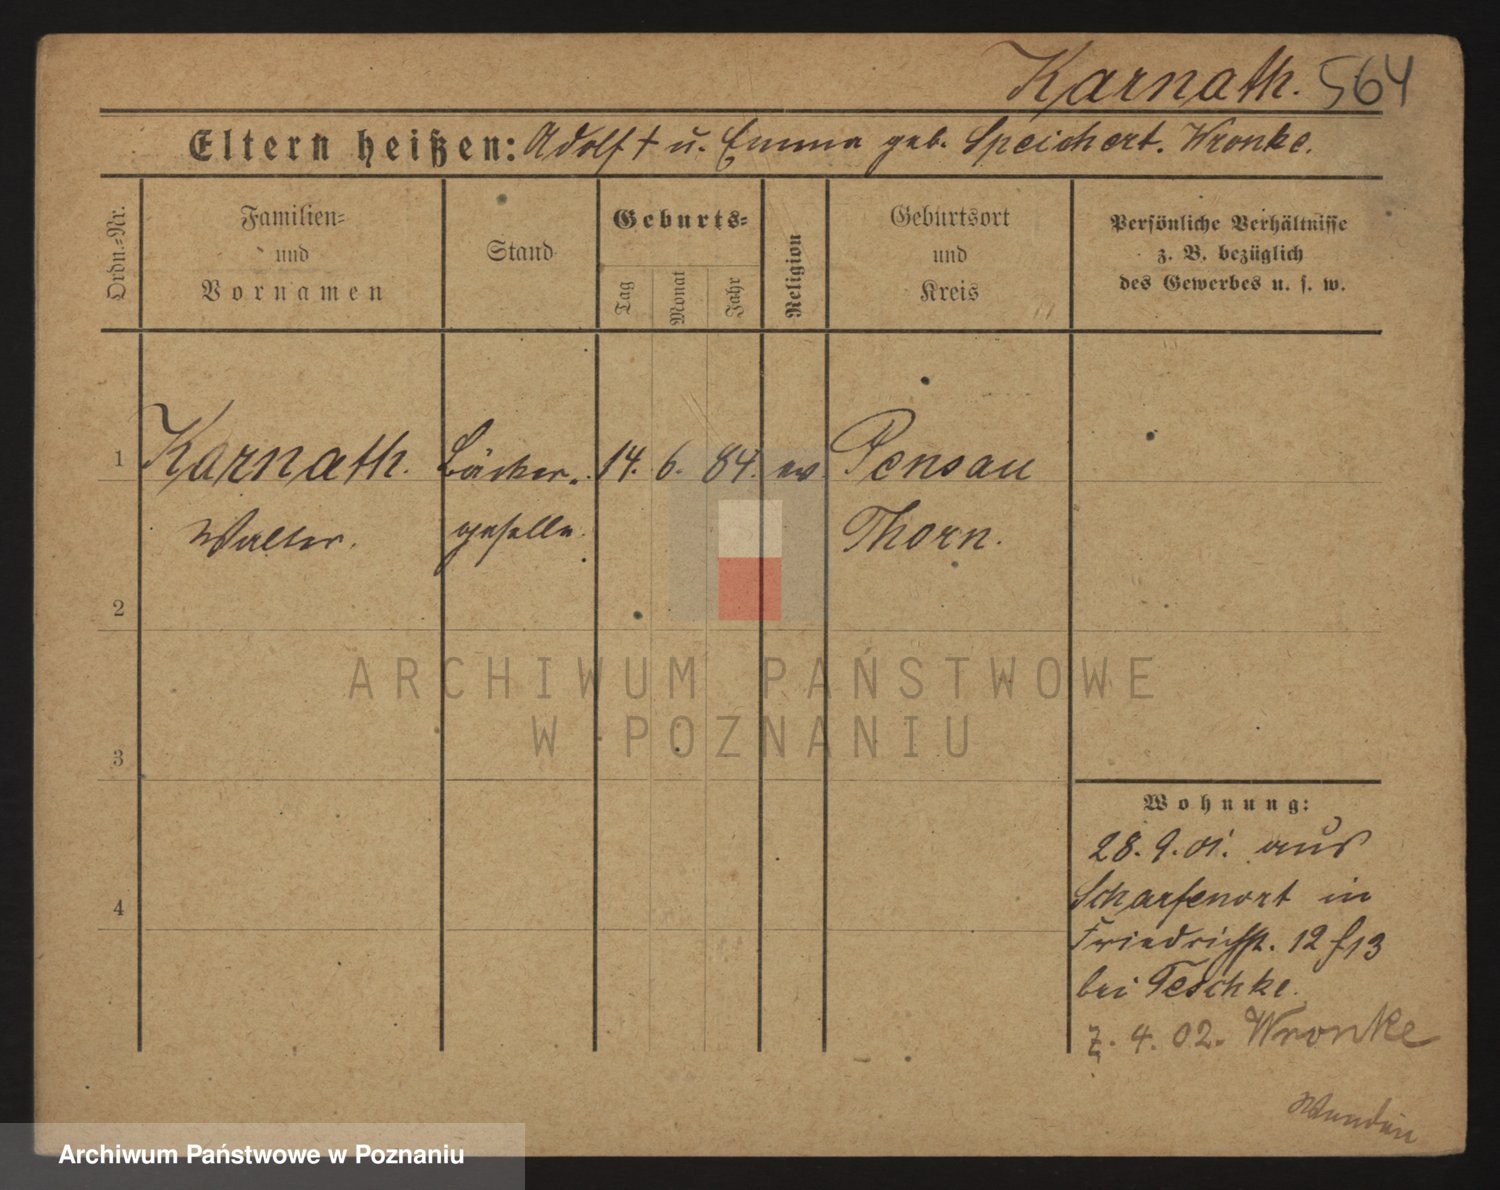 Karnath. 564
Eltern heißen: Adolf † u. Emma geb. Speichert. Wronke.
Ordn.-Nr.
Familien-
und
Vornamen
Stand
Geburts-
Tag
Monat
Jahr
Religion
Geburtsort
und
Kreis
Persönliche Verhältnisse
z. B. bezüglich
des Gewerbes u. s. w.
1 Karnath. Bäcker- 14. 6. 84. ev. Pensau
Walter. geselle. Thorn.
2
3
4
Wohnung:
28. 9. 01. aus
Scharfenort in
Friedrichstr. 12 f 13
bei Teschke.
4. 02. Wronke
ARCHIWUM PAŃSTWOWE
W POZNANIU
Archiwum Państwowe w Poznaniu